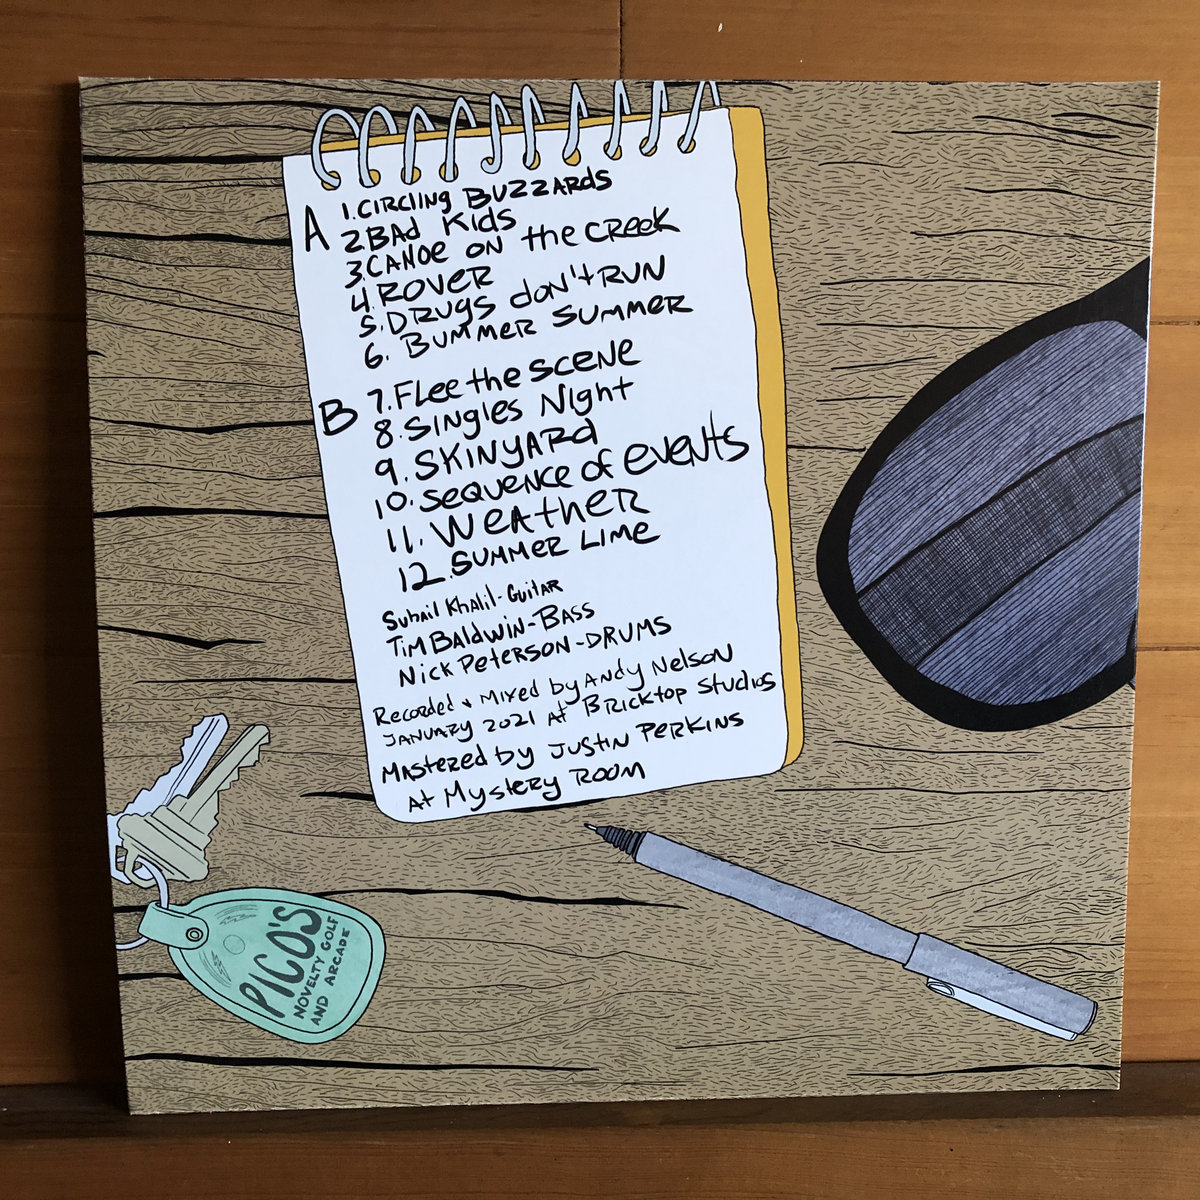 A
1. CIRCLING BUZZARDS
2 BAD KIDS
3. CANOE ON the CREEK
4. ROVER
5. DRUGS don't RUN
6. BUMMER SUMMER
B
7. FLee the SCENE
8. SINGLES NIGHT
9. SKINYARD
10. SEQUENCE OF EVENTS
11. WEATHER
12. SUMMER LIME
Suhail Khalil - Guitar
Tim Baldwin - Bass
Nick Peterson - DRUMS
Recorded & Mixed by Andy Nelson
January 2021 At Bricktop Studios
Mastered by Justin Perkins
At Mystery Room
PICO'S
NOVELTY GOLF
AND ARCADE